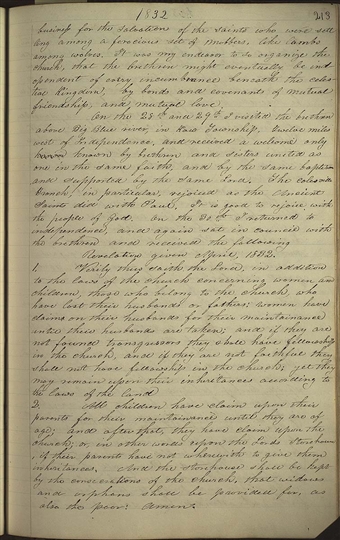 1832
213
business for the salvations of the saints who were sett
ling among a ferocious set of mobbers, like lambs
among wolves. It was my endeavor to so organize the
church, that the brethren might eventually be ind
ependent of every incumbrance beneath the celes-
tial kingdom, by bonds and covenants of mutual
friendship, and mutual love.
On the 28th and 29th I visited the brethren
above Big Blue river, in Kaw Township, twelve miles
west of Independence, and received a welcome only
known by brethren and sisters united as
one in the same faith, and by the same baptism
and supported by the same Lord. The Colesville
branch, in particular, rejoiced as the Ancient
Saints did with Paul. It is good to rejoice with
the people of God. On the 30th I returned to
independence, and again sat in council with
the brethren and received the following
Revelation given April, 1832.
1. Verily thus saith the Lord, in addition
to the laws of the church concerning women and
children, those who belong to the church, who
have lost their husbands or fathers: Women have
claims on their husbands for their maintainance
until their husbands are taken; and if they are
not found transgressors they shall have fellowship
in the church, and if they are not faithful they
shall not have fellowship in the church; yet they
may remain upon their inheritances according to
the laws of the land.
2. All children have claim upon their
parents for their maintainance until they are of
age; and after that, they have claim upon the
church; or, in other words upon the Lords Storehouse
, if their parents have not wherewith to give them
inheritances. And the storehouse shall be kept
by the consecrations of the church, that widows
and orphans shall be provided for, as
also the poor: Amen.